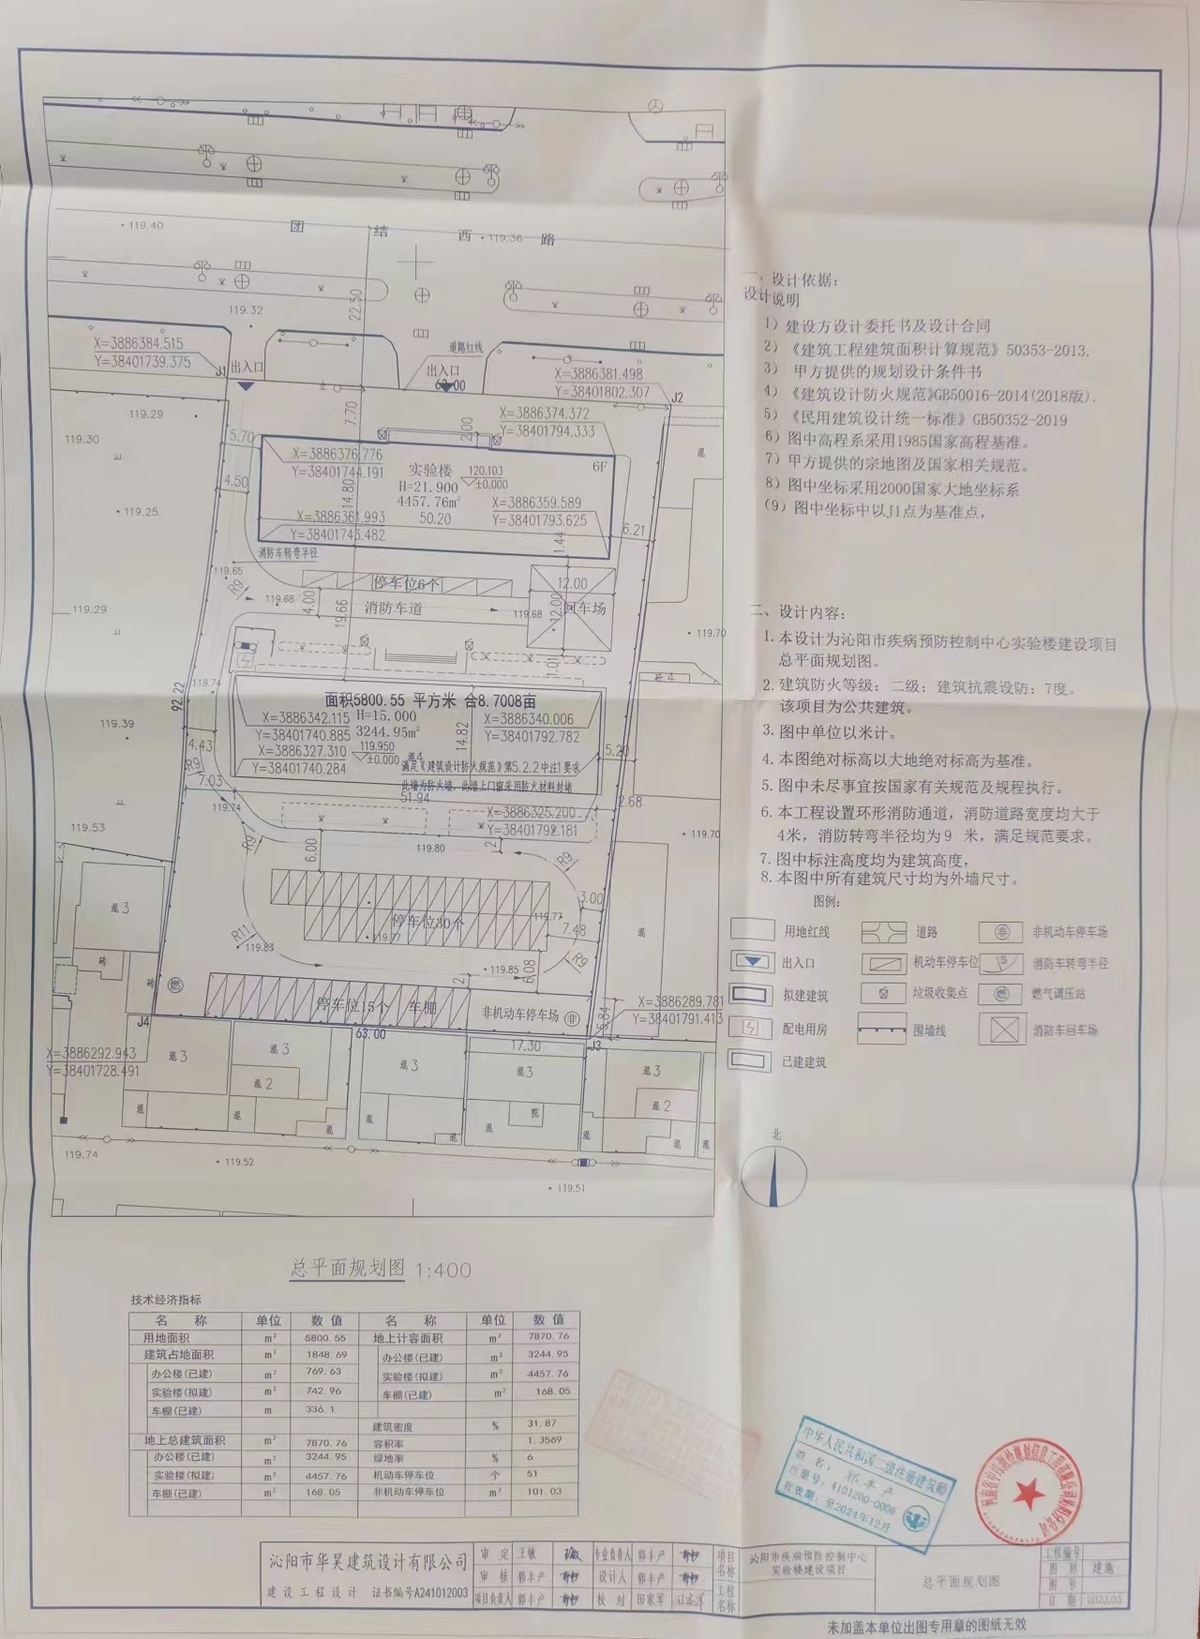 119.40
团 结 西 路
119.36
119.32
22.50
X=3886384.515
Y=38401739.375
J1
出入口
道路红线
出入口
63.00
X=3886381.498
Y=38401802.307
J2
119.29
7.70
2.00
X=3886374.372
Y=38401794.333
119.30
5.70
X=3886376.776
Y=38401744.191
实验楼
120.103
±0.000
6F
H=21.900
4457.76m²
4.50
14.80
X=3886359.589
Y=38401793.625
119.25
X=3886361.993
Y=38401743.482
50.20
6.21
1.44
消防车转弯半径
119.65
R9
停车位6个
12.00
119.29
119.68
4.00
消防车道
19.66
119.68
12.00
回车场
119.70
1.01
119.74
砼4
面积5800.55 平方米 合8.7008亩
92.22
X=3886342.115
Y=38401740.885
H=15.000
3244.95m²
X=3886340.006
Y=38401792.782
119.39
X=3886327.310
Y=38401740.284
119.950
±0.000
混4
14.82
4.43
R9
满足《建筑设计防火规范》第5.2.2中注1要求
此墙为防火墙，此墙上门窗采用防火材料封堵
5.20
7.03
51.94
2.68
119.74
X=3886325.200
Y=38401792.181
119.53
119.70
R9
6.00
119.80
2
R9
混3
3.00
停车位30个
119.77
119.77
7.48
混
R11
119.83
砖
119.85
6.08
2
砖
停车位15个 车棚
非机动车停车场
X=3886289.781
Y=38401791.413
5.84
J4
63.00
J3
17.30
X=3886292.943
Y=38401728.491
混3
混3
混3
混3
混3
混2
混2
119.74
119.52
119.51
一、设计依据：
设计说明
1）建设方设计委托书及设计合同
2）《建筑工程建筑面积计算规范》50353-2013.
3） 甲方提供的规划设计条件书
4）《建筑设计防火规范》GB50016-2014(2018版).
5）《民用建筑设计统一标准》GB50352-2019
6）图中高程系采用1985国家高程基准。
7）甲方提供的宗地图及国家相关规范。
8）图中坐标采用2000国家大地坐标系
(9）图中坐标中以J1点为基准点，
二、设计内容：
1. 本设计为沁阳市疾病预防控制中心实验楼建设项目
总平面规划图。
2. 建筑防火等级：二级；建筑抗震设防：7度。
该项目为公共建筑。
3. 图中单位以米计。
4. 本图绝对标高以大地绝对标高为基准。
5. 图中未尽事宜按国家有关规范及规程执行。
6. 本工程设置环形消防通道，消防道路宽度均大于
4米，消防转弯半径均为9 米，满足规范要求。
7. 图中标注高度均为建筑高度，
8. 本图中所有建筑尺寸均为外墙尺寸。
图例：
用地红线 道路 非机动车停车场
出入口 机动车停车位 消防车转弯半径
拟建建筑 垃圾收集点 燃气调压站
配电用房 围墙线 消防车回车场
已建建筑
北
总平面规划图 1:400
技术经济指标
名 称 单位 数 值 名 称 单位 数 值
用地面积 m² 5800.55 地上计容面积 m² 7870.76
建筑占地面积 m² 1848.69 办公楼(已建) m² 3244.95
办公楼(已建) m² 769.63 实验楼(拟建) m² 4457.76
实验楼(拟建) m² 742.96 车棚(已建) m² 168.05
车棚(已建) m 336.1
建筑密度 % 31.87
地上总建筑面积 m² 7870.76 容积率 1.3569
办公楼(已建) m² 3244.95 绿地率 % 6
实验楼(拟建) m² 4457.76 机动车停车位 个 51
车棚(已建) m² 168.05 非机动车停车位 m² 101.03
中华人民共和国二级注册建筑师
姓 名：郭丰产
注册号：4101200-0006
有效期：至2024年12月
沁阳市华昊建筑设计有限公司
建设工程设计 证书编号A241012003
审 定 王敏 专业负责人 郭丰产
审 核 郭丰产 设计人 郭丰产
项目负责人 郭丰产 校 对 田家军
项目名称
沁阳市疾病预防控制中心
实验楼建设项目
工程名称
总平面规划图
工程编号
图 别 建施
图 号
日 期 2023.03
未加盖本单位出图专用章的图纸无效